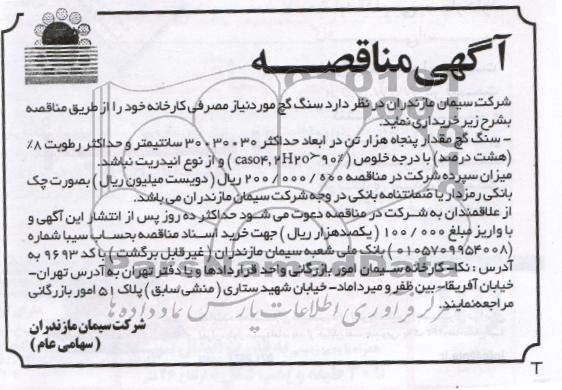 آگهی مناقصه
شرکت سیمان مازندران در نظر دارد سنگ گچ مورد نیاز مصرفی کارخانه خود را از طریق مناقصه
بشرح زیر خریداری نماید.
- سنگ گچ مقدار پنجاه هزار تن در ابعاد حداکثر ۳۰*۳۰*۳۰ سانتیمتر و حداکثر رطوبت ۸٪
(هشت درصد) با درجه خلوص (caso۴, ۲H۲o>۹۰٪) و از نوع انیدریت نباشد.
میزان سپرده شرکت در مناقصه ۲۰۰/۰۰۰/۰۰۰ ریال (دویست میلیون ریال) بصورت چک
بانکی رمزدار یا ضمانتنامه بانکی در وجه شرکت سیمان مازندران می باشد.
از علاقمندان به شرکت در مناقصه دعوت می شود حداکثر ده روز پس از انتشار این آگهی و
با واریز مبلغ ۱۰۰/۰۰۰ (یکصد هزار ریال) جهت خرید اسناد مناقصه بحساب سیبا شماره
(۰۱۰۵۷۰۹۹۵۴۰۰۸) بانک ملی شعبه سیمان مازندران (غیر قابل برگشت) با کد ۹۶۹۳ به
آدرس: نکا- کارخانه سیمان امور بازرگانی واحد قراردادها و یا دفتر تهران به آدرس تهران-
خیابان آفریقا- بین ظفر و میرداماد- خیابان شهید ستاری (منشی سابق) پلاک ۵۱ امور بازرگانی
مراجعه نمایند.
شرکت سیمان مازندران
(سهامی عام)
T
مرکز فرآوری اطلاعات پارس نماد داده ها